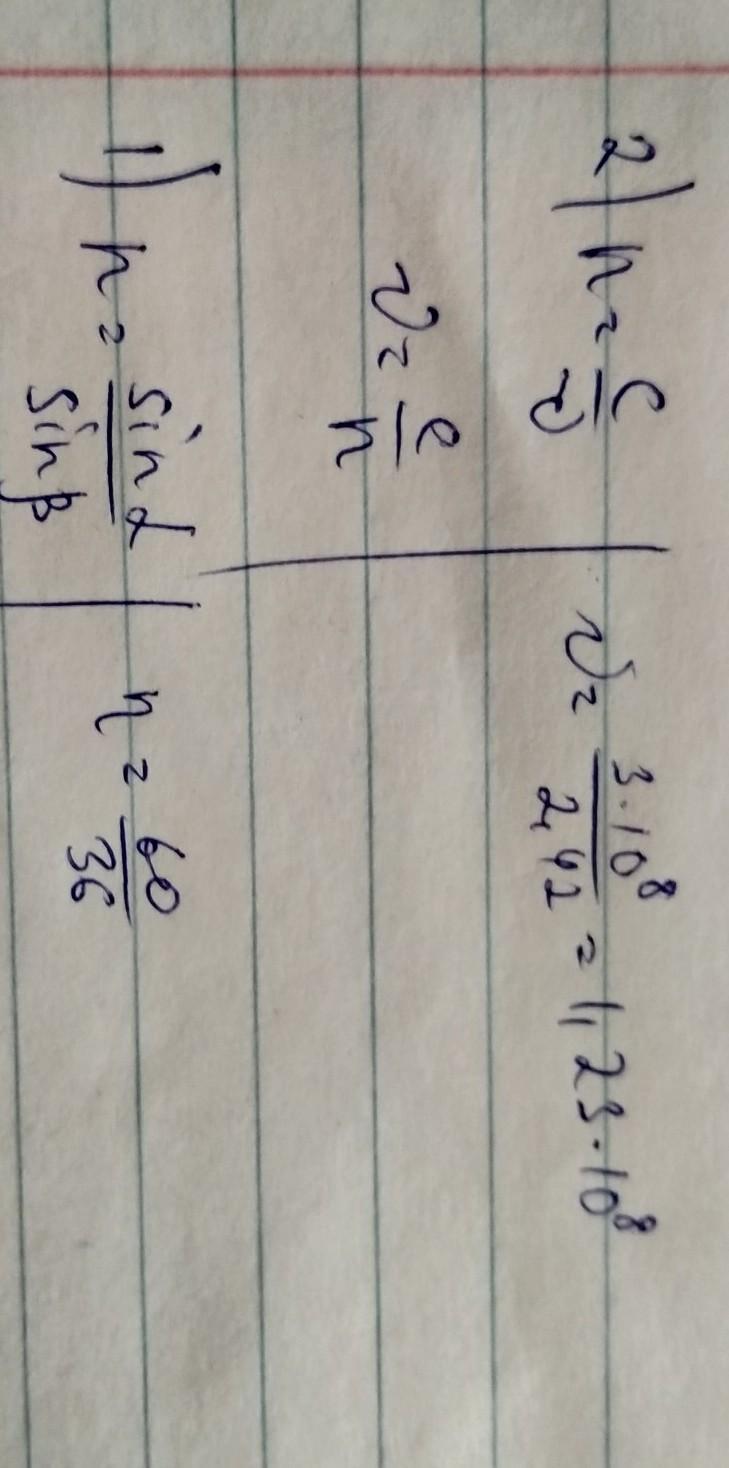 2) n = c/υ | υ = 3·10⁸/2,42 = 1,23·10⁸
υ = c/n
1) n = sin α/sin β | n = 60/36